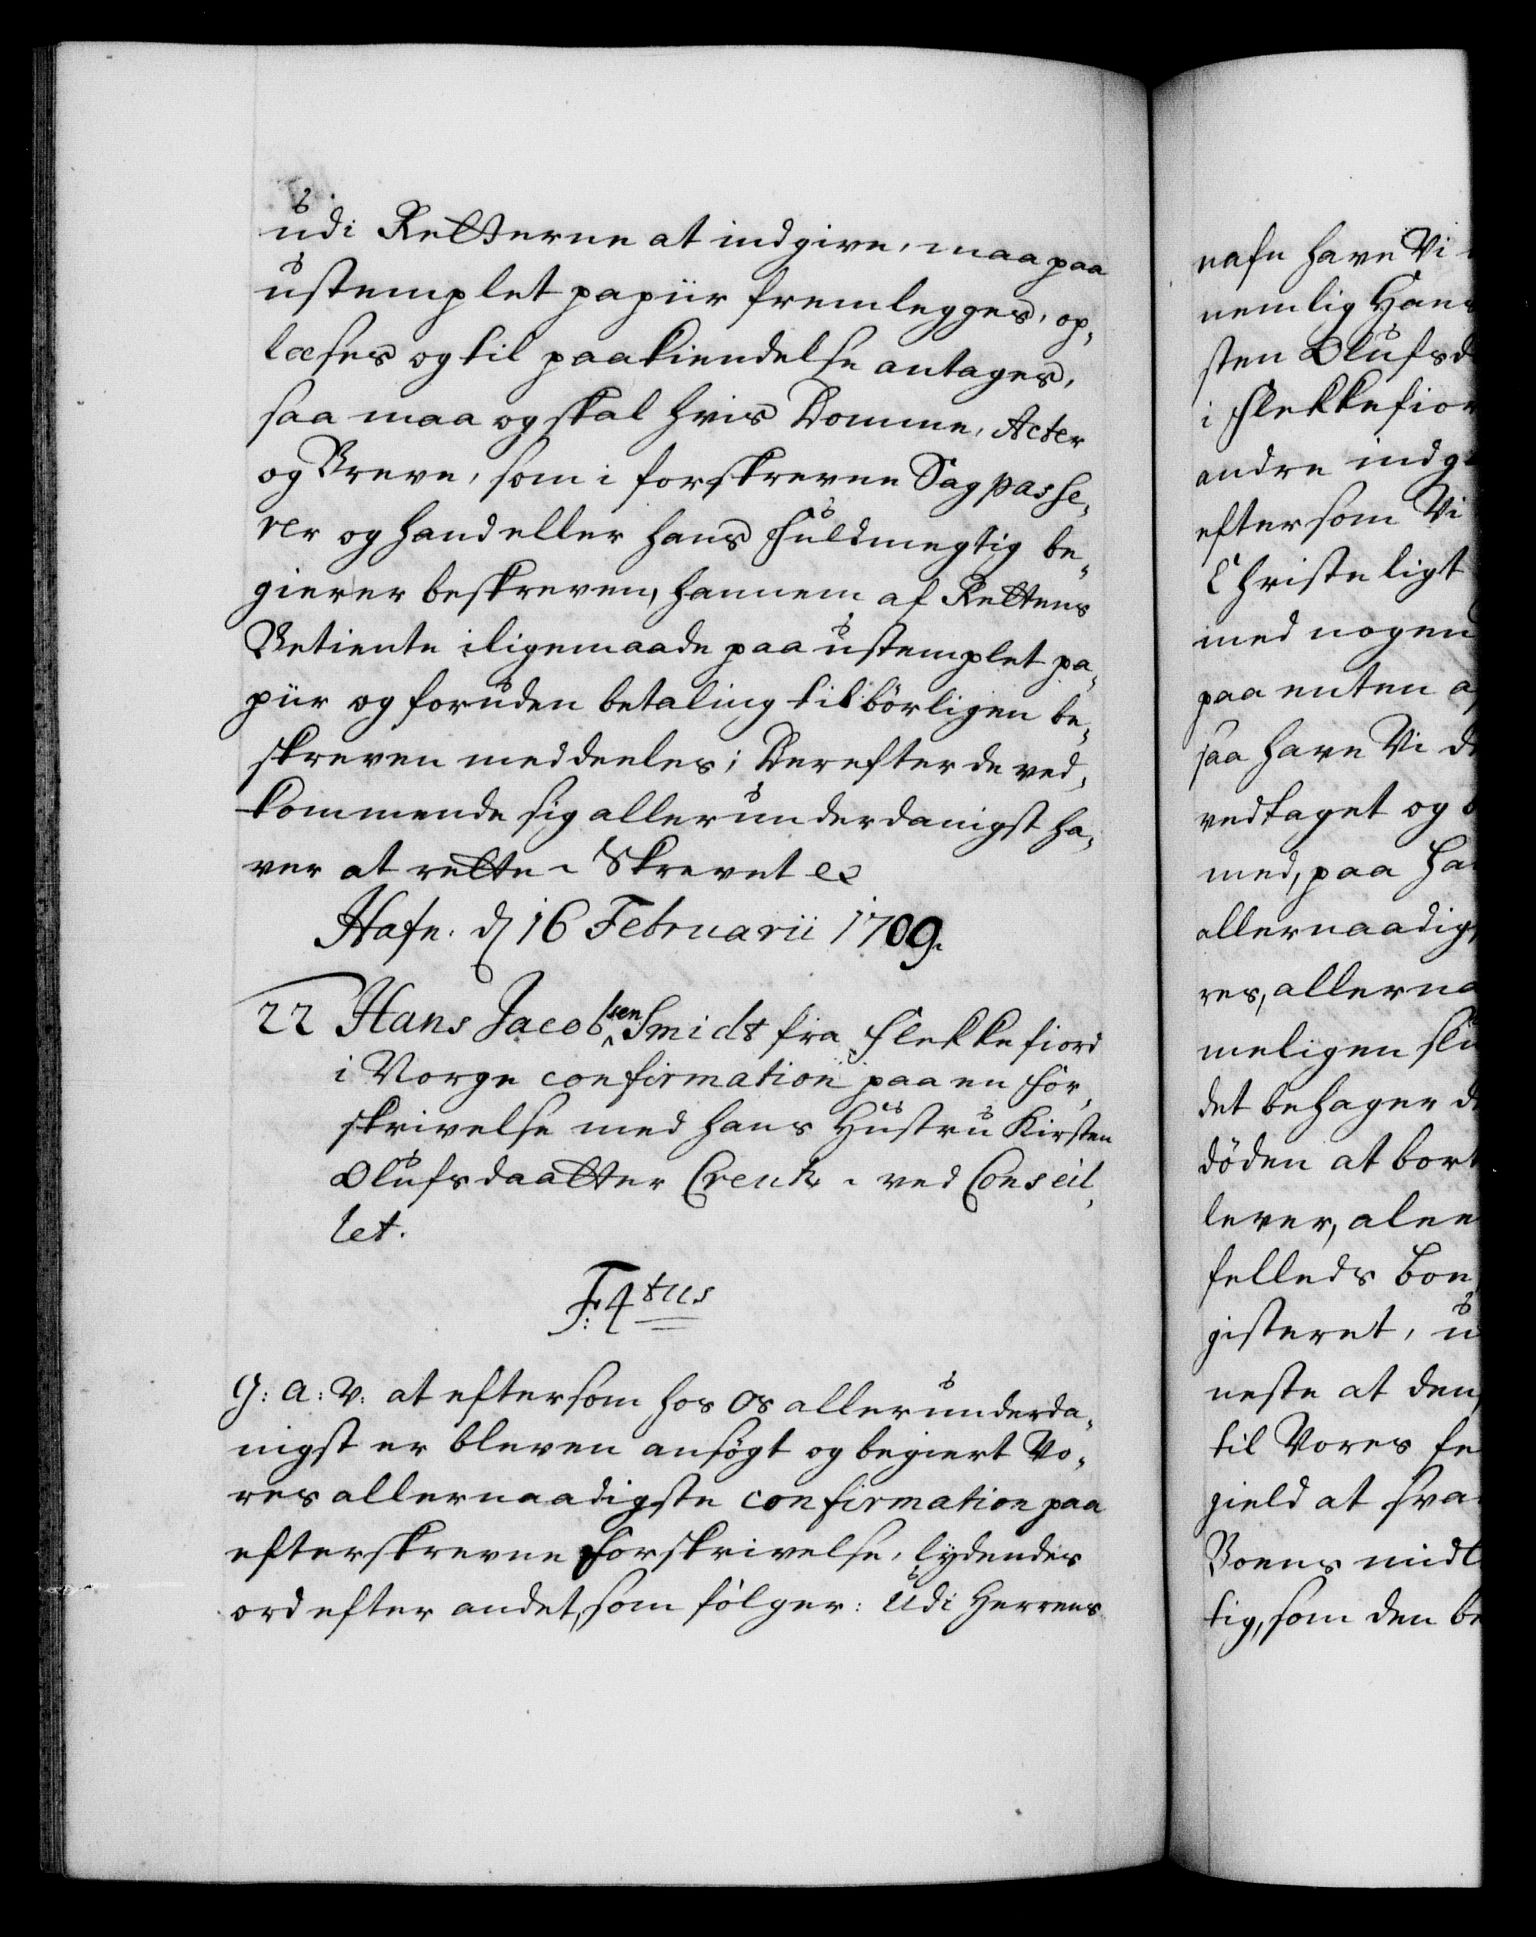 udi Retterne at indgive, maa paa
ustemplet papiir fremlegges, op-
læses og til paakiendelse antages,
saa maa og skal hvis Domme, Acter
og Breve, som i forskrevne Sag passe-
rer og hand eller hans Fuldmegtig be-
gierer beskreven, hannem af Rettens
Betiente iligemaade paa ustemplet pa-
piir og foruden betaling tilbörligen be-
skreven meddeeles; Derefter de ved-
kommende sig allerunderdanigst ha-
ver at rette. Skrevet &c
Hafn. d 16 Februarii 1709.
22 Hans Jacobsen Smidt fra Flekkefiord
i Norge confirmation paa en For-
skrivelse med hans Hustru Kirsten
Olufsdaatter Creutz. ved Conseil-
let.
F: 4tus
G: A: V: at eftersom hos Os allerunderda-
nigst er bleven ansögt og begiert Vo-
res allernaadigste confirmation paa
efterskrevne Forskrivelse, lydendes
ord efter andet, som fölger: Udi Herrens
nafn have Vi
nemlig Hans
sten Olufsd
i Flekkefior
andre indg
eftersom Vi
Christeligt
med nogen
paa enten a
saa have Vi d
vedtaget og b
med, paa ha
allernaadigs
res, allerna
meligen slu
det behager d
döden at bort
lever, alen
felleds Boe
gisteret, u
neste at den
til Vores fe
gield at sva
Boens midl
tig, som den be